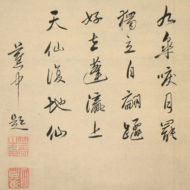 九皋唳月罷
獨立自翩躚
好去蓬瀛上
天仙復地仙
中題